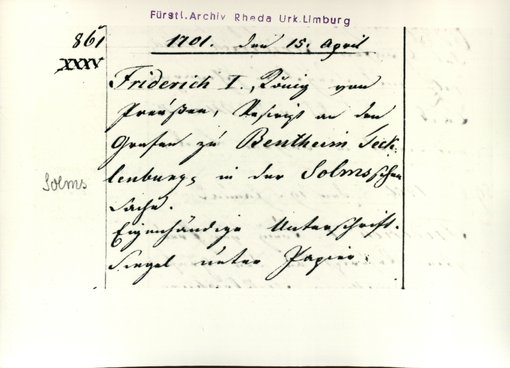 Fürstl. Archiv Rheda Urk. Limburg
861
XXXV
1701. den 15. April
Friderich I., König von
Preußen, Rescript an den
Grafen zu Bentheim Teck-
lenburg, in der Solmsschen
Solms
Sache.
Eigenhändige Unterschrift.
Siegel unter Papier.